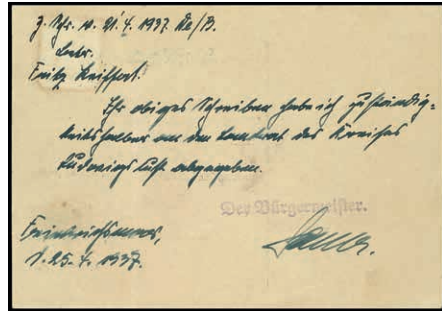 z. Schr. v. 21.4.1937. Ke/B.
betr.
Fritz Keiffert.
Ihr obiges Schreiben habe ich zuständig=
keitshalber an den Landrat des Kreises
Ludwigslust abgegeben.
Der Bürgermeister.
Friedrichsmoor,
d. 25. 4. 1937.